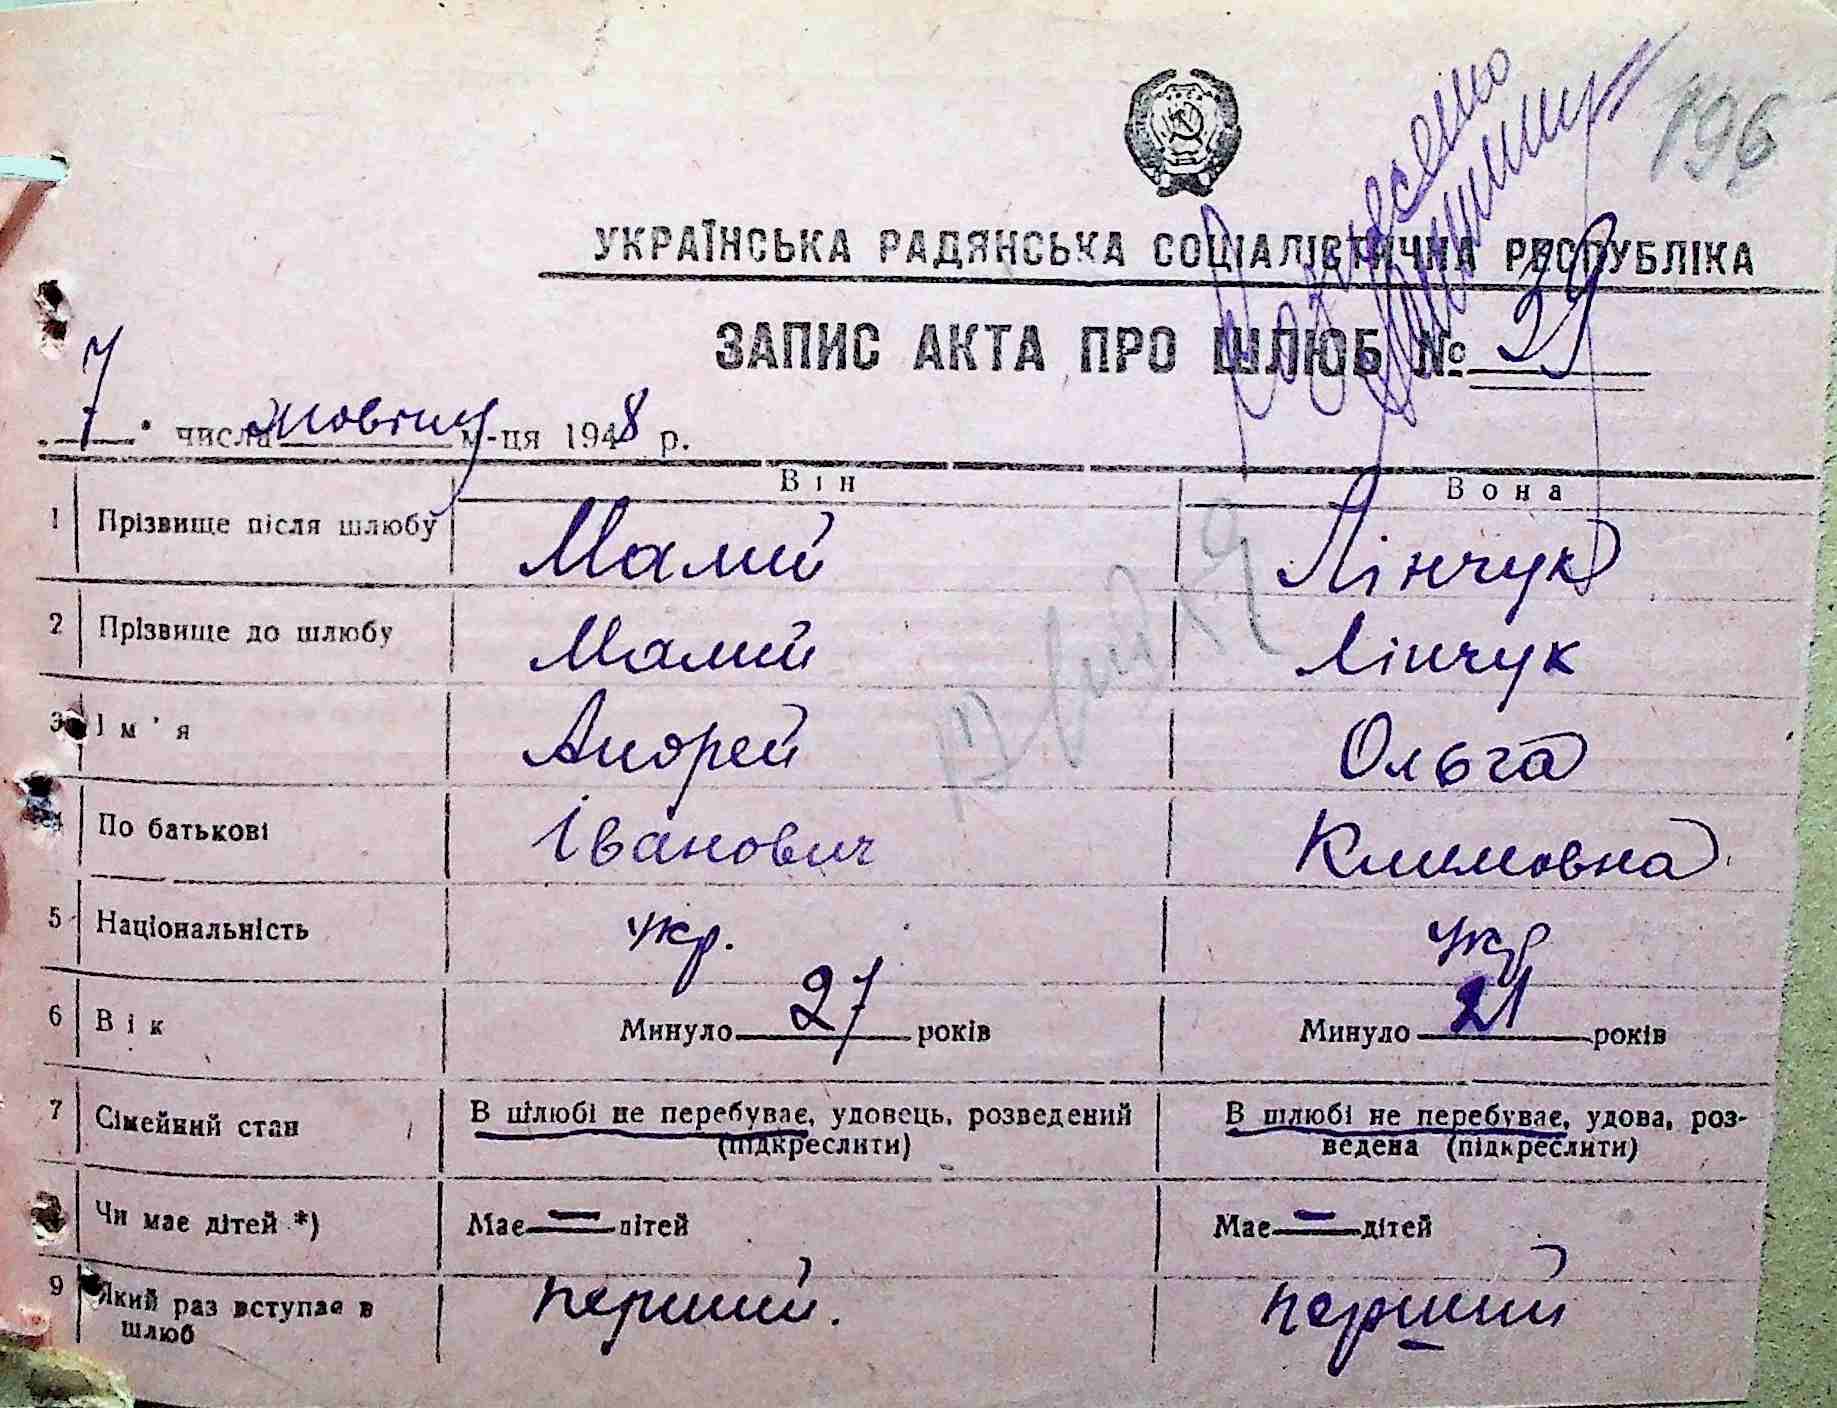 196
УКРАЇНСЬКА РАДЯНСЬКА СОЦІАЛІСТИЧНА РЕСПУБЛІКА
ЗАПИС АКТА ПРО ШЛЮБ № 39
"7" числа жовтня м-ця 1948 р.
Він Вона
1 Прізвище після шлюбу Мамий Лінчук
2 Прізвище до шлюбу Мамий Лінчук
3 Ім'я Андрей Ольга
4 По батькові Іванович Климовна
5 Національність укр. укр
6 Вік Минуло 27 років Минуло 21 років
7 Сімейний стан В шлюбі не перебуває, удовець, розведений В шлюбі не перебуває, удова, роз-
(підкреслити) ведена (підкреслити)
Чи має дітей *) Має — дітей Має — дітей
9 Який раз вступає в перший. перший
шлюб